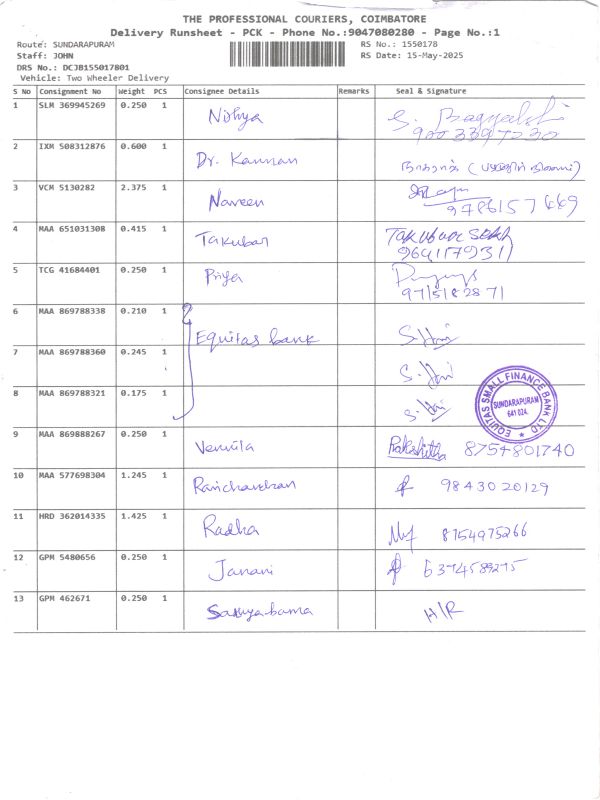 THE PROFESSIONAL COURIERS, COIMBATORE
Delivery Runsheet - PCK - Phone No.:9047080280 - Page No.:1
Route: SUNDARAPURAM RS No.: 1550178
Staff: JOHN RS Date: 15-May-2025
DRS No.: DCJB155017801
Vehicle: Two Wheeler Delivery
S No Consignment No Weight PCS Consignee Details Remarks Seal & Signature
1 SLM 369945269 0.250 1 Nithya
9003397230
2 IXM 508312876 0.600 1 Dr. Kannan
3 VCM 5130282 2.375 1 Naveen
9786157669
4 MAA 651031308 0.415 1 Takubar
9641179311
5 TCG 41684401 0.250 1 Priya
9715182871
6 MAA 869788338 0.210 1 Equitas bank S. Hari
7 MAA 869788360 0.245 1 S. Hari
8 MAA 869788321 0.175 1 S. Hari
EQUITAS SMALL FINANCE BANK LTD
SUNDARAPURAM
641 024.
9 MAA 869888267 0.250 1 Vemula Rakshitha 8754801740
10 MAA 577698304 1.245 1 Ramchandran 9843020129
11 HRD 362014335 1.425 1 Radha 8754975266
12 GPM 5480656 0.250 1 Janani 6374589275
13 GPM 462671 0.250 1 Sathyabama H/R